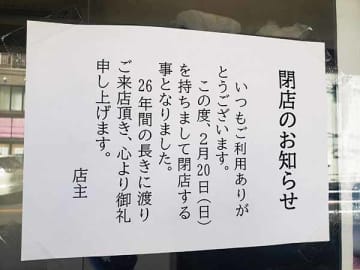 閉店のお知らせ
いつもご利用ありが
とうございます。
この度、2月20日（日）
を持ちまして閉店する
事となりました。
26年間の長きに渡り
ご来店頂き、心より御礼
申し上げます。
店主